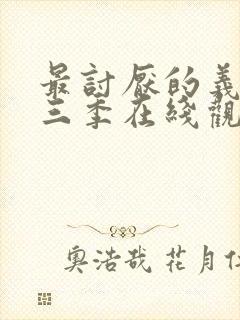 最討厭的義
三季在綫觀
奧浩哉 花月仁